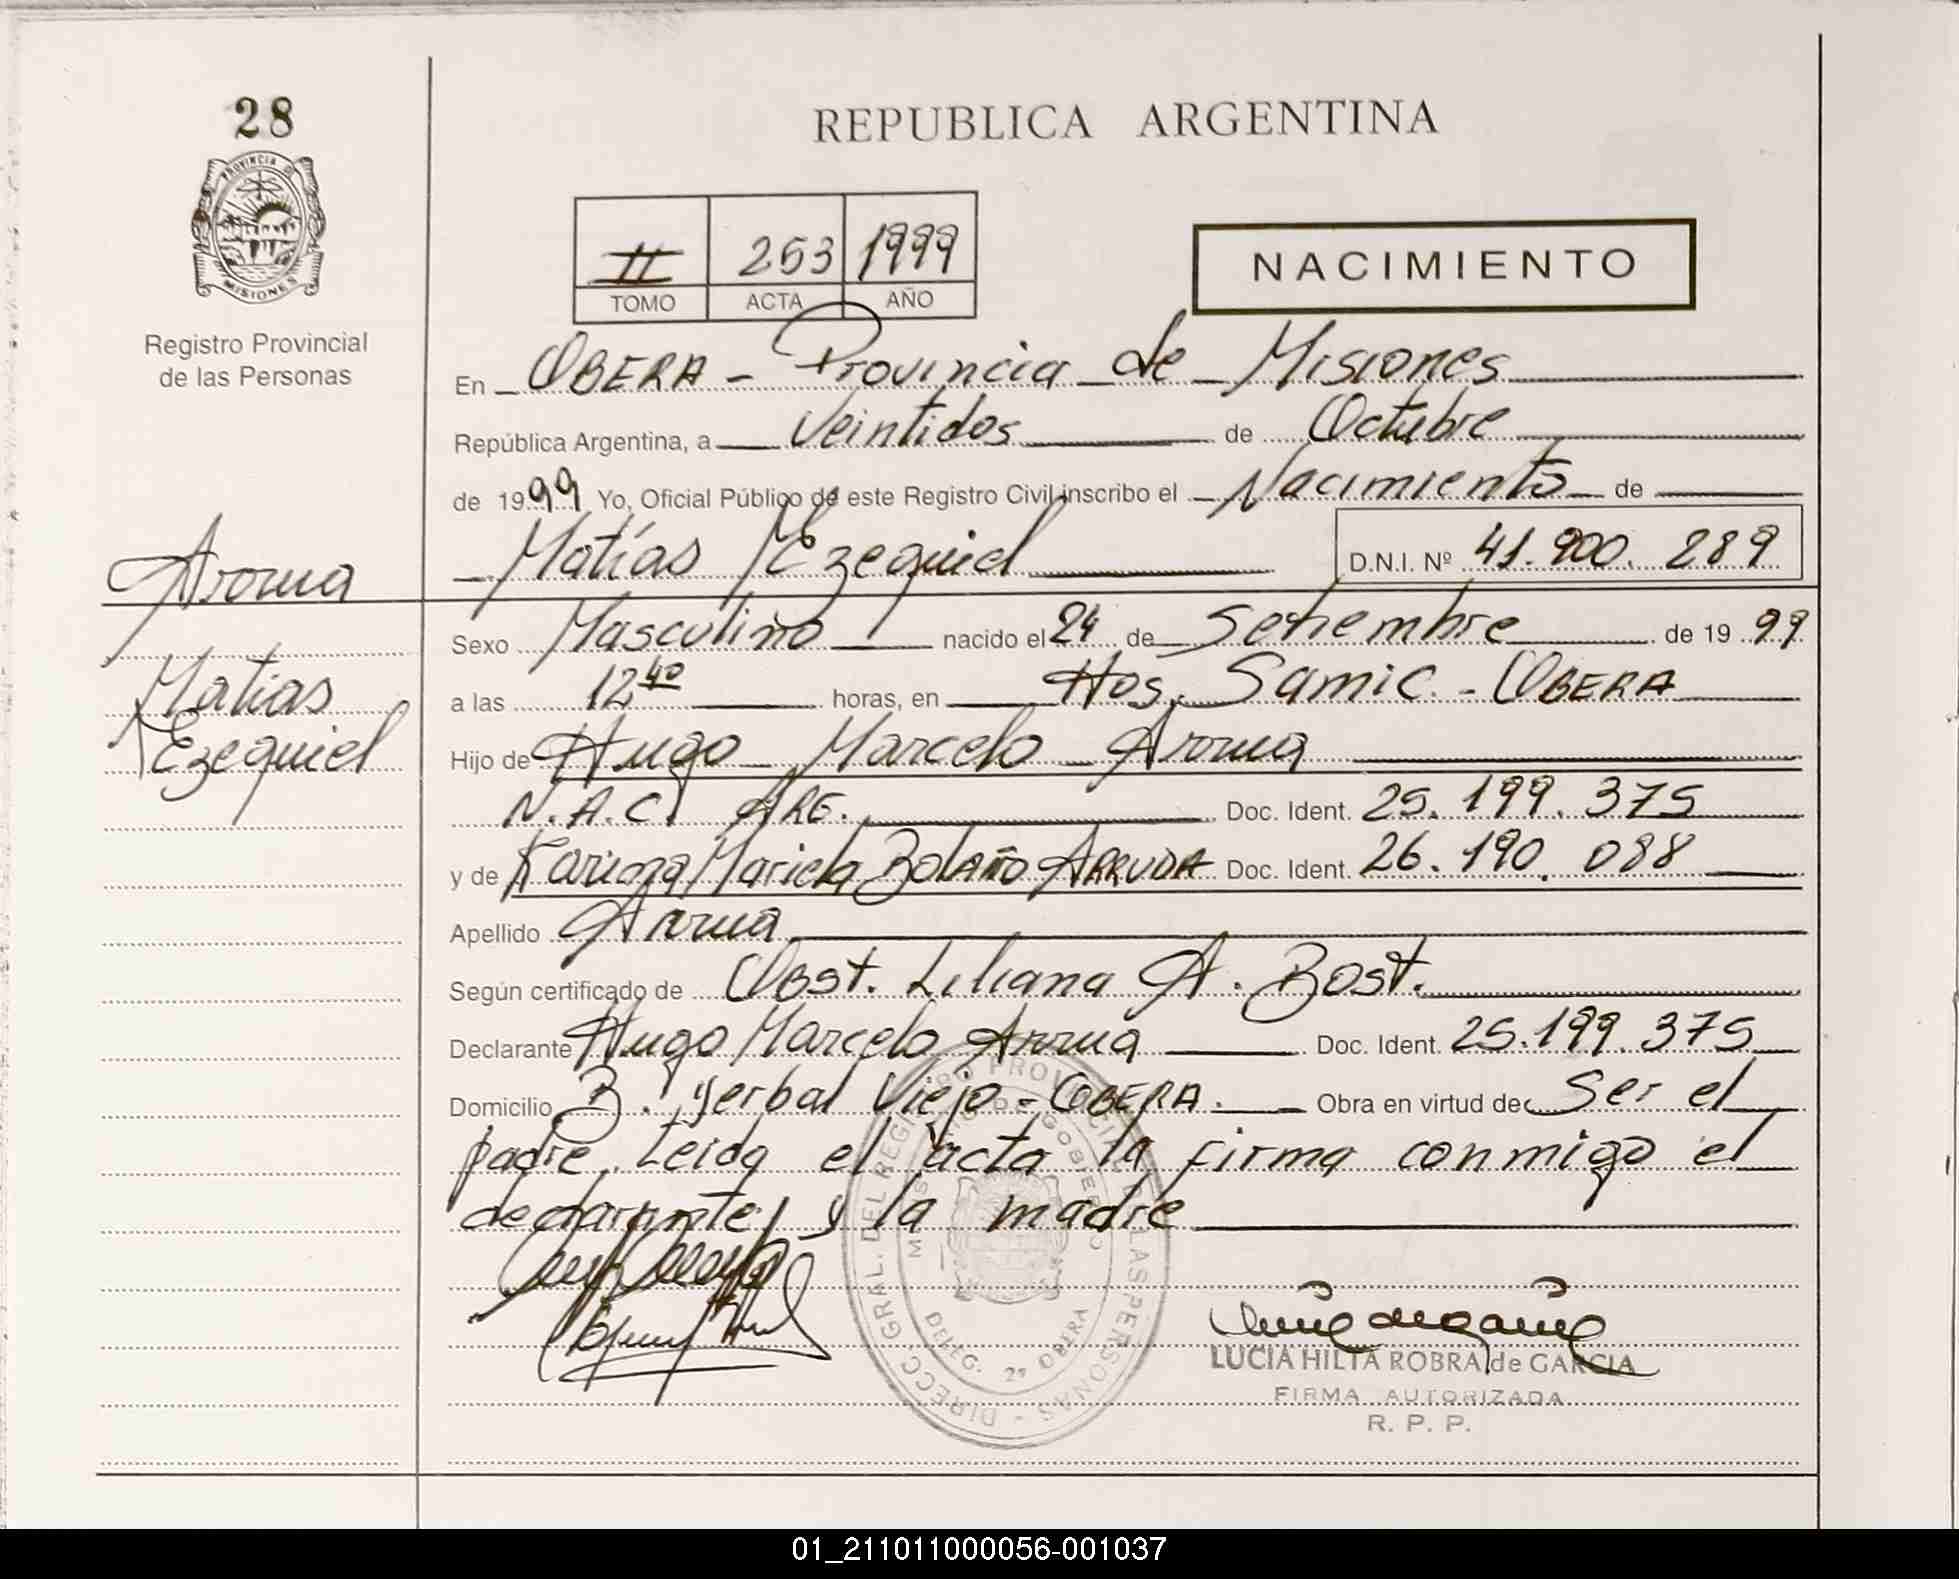 28
PROVINCIA DE
MISIONES
Registro Provincial
de las Personas
REPUBLICA ARGENTINA
II 253 1999
TOMO ACTA AÑO
NACIMIENTO
En OBERA - Provincia de Misiones
República Argentina, a Veintidos de Octubre
de 1999 Yo, Oficial Público de este Registro Civil inscribo el Nacimiento de
Matías Ezequiel D.N.I. Nº 41.900.289
Arrua
Matias
Ezequiel
Sexo Masculino nacido el 24 de Setiembre de 1999
a las 12 40 horas, en Hos. Samic - OBERA
Hijo de Hugo Marcelo Arrua
N.A.C. ARG. Doc. Ident. 25.199.375
y de Karina Mariela Bolaño ARRUDA Doc. Ident. 26.190.088
Apellido Arrua
Según certificado de Obst. Liliana A. Bost.
Declarante Hugo Marcelo Arrua Doc. Ident. 25.199.375
Domicilio B. Yerbal Viejo - OBERA. Obra en virtud de Ser el
padre. Leida el acta la firma conmigo el
declarante y la madre
DIRECC. GRAL. DEL REGISTRO PROVINCIAL DE LAS PERSONAS
DELEG. 2ª OBERA
LUCIA HILTA ROBRA de GARCIA
FIRMA AUTORIZADA
R. P. P.
01_211011000056-001037